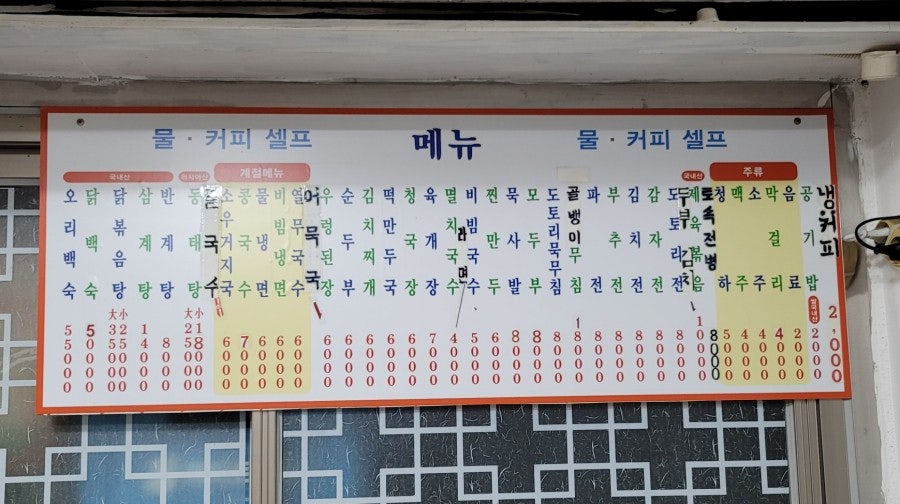 물 · 커피 셀프
메뉴
물 · 커피 셀프
국내산
아시아산
계절메뉴
국내산
주류
오리백숙 55000
닭백숙 50000
닭볶음탕 大 35000 小 25000
삼계탕 14000
반계탕 8000
동태탕 大 25000 小 18000
콩국수
소우거지국 6000
콩국수 7000
물냉면 6000
비빔냉면 6000
열무냉국수 6000
어묵국
우렁된장 6000
순두부 6000
김치찌개 6000
떡만두국 6000
청국장 6000
육개장 7000
멸치국수 4000
라면
비빔국수 5000
찐만두 6000
묵사발 8000
모두부 8000
도토리묵무침 8000
골뱅이무침 8000
파전 8000
부추전 8000
김치전 8000
감자전 8000
도토리전 8000
두부김치
제육볶음 10000
토속전병 8000
청하 5000
맥주 4000
소주 4000
막걸리 4000
음료 2000
공기밥
냉커피 2,000